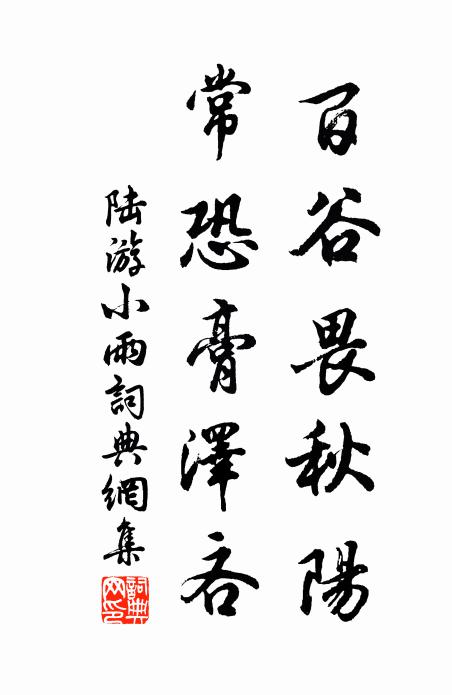 百谷畏秋陽
常恐膏澤吝
陆游小雨詞典網集
詞典网印